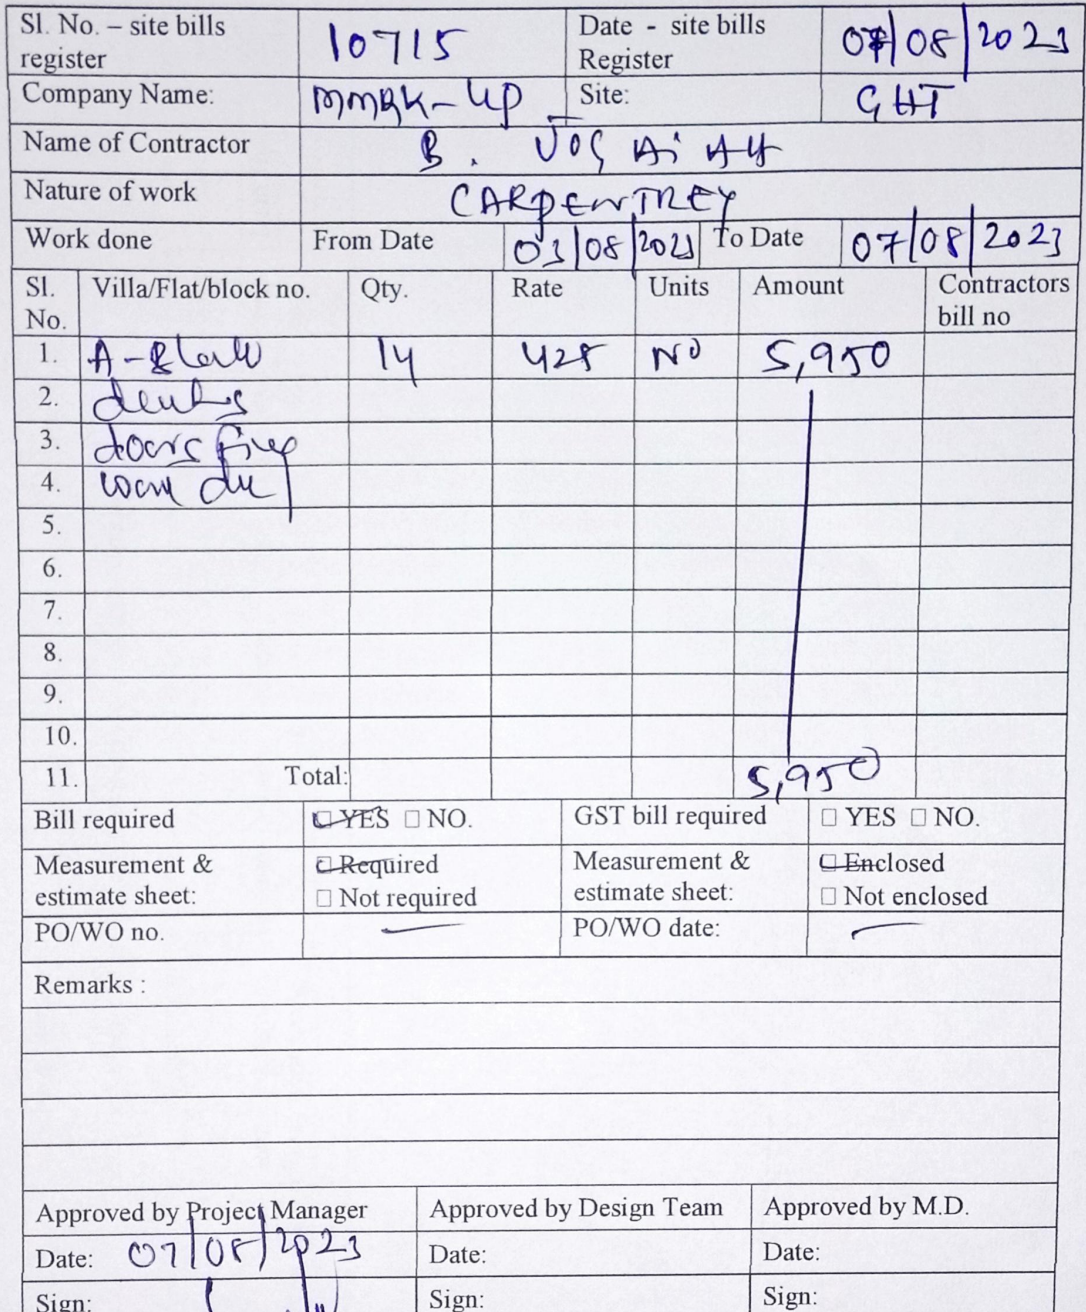 Sl. No. – site bills register 10715 Date - site bills Register 07/08/2023
Company Name: Site: GHT
Name of Contractor B.
Nature of work CARPENTREY
Work done From Date 03/08/2023 To Date 07/08/2023
Sl. No. Villa/Flat/block no. Qty. Rate Units Amount Contractors bill no
1. 14 425 NO 5,950
2.
3. doors
4.
5.
6.
7.
8.
9.
10.
11. Total: 5,950
Bill required □ YES □ NO. GST bill required □ YES □ NO.
Measurement & estimate sheet: □ Required □ Not required Measurement & estimate sheet: □ Enclosed □ Not enclosed
PO/WO no. — PO/WO date: —
Remarks :
Approved by Project Manager Approved by Design Team Approved by M.D.
Date: 07/08/2023 Date: Date:
Sign: Sign: Sign: